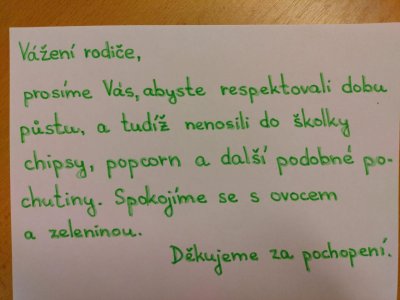 Vážení rodiče,
prosíme Vás, abyste respektovali dobu
půstu, a tudíž nenosili do školky
chipsy, popcorn a další podobné po-
chutiny. Spokojíme se s ovocem
a zeleninou.
Děkujeme za pochopení.